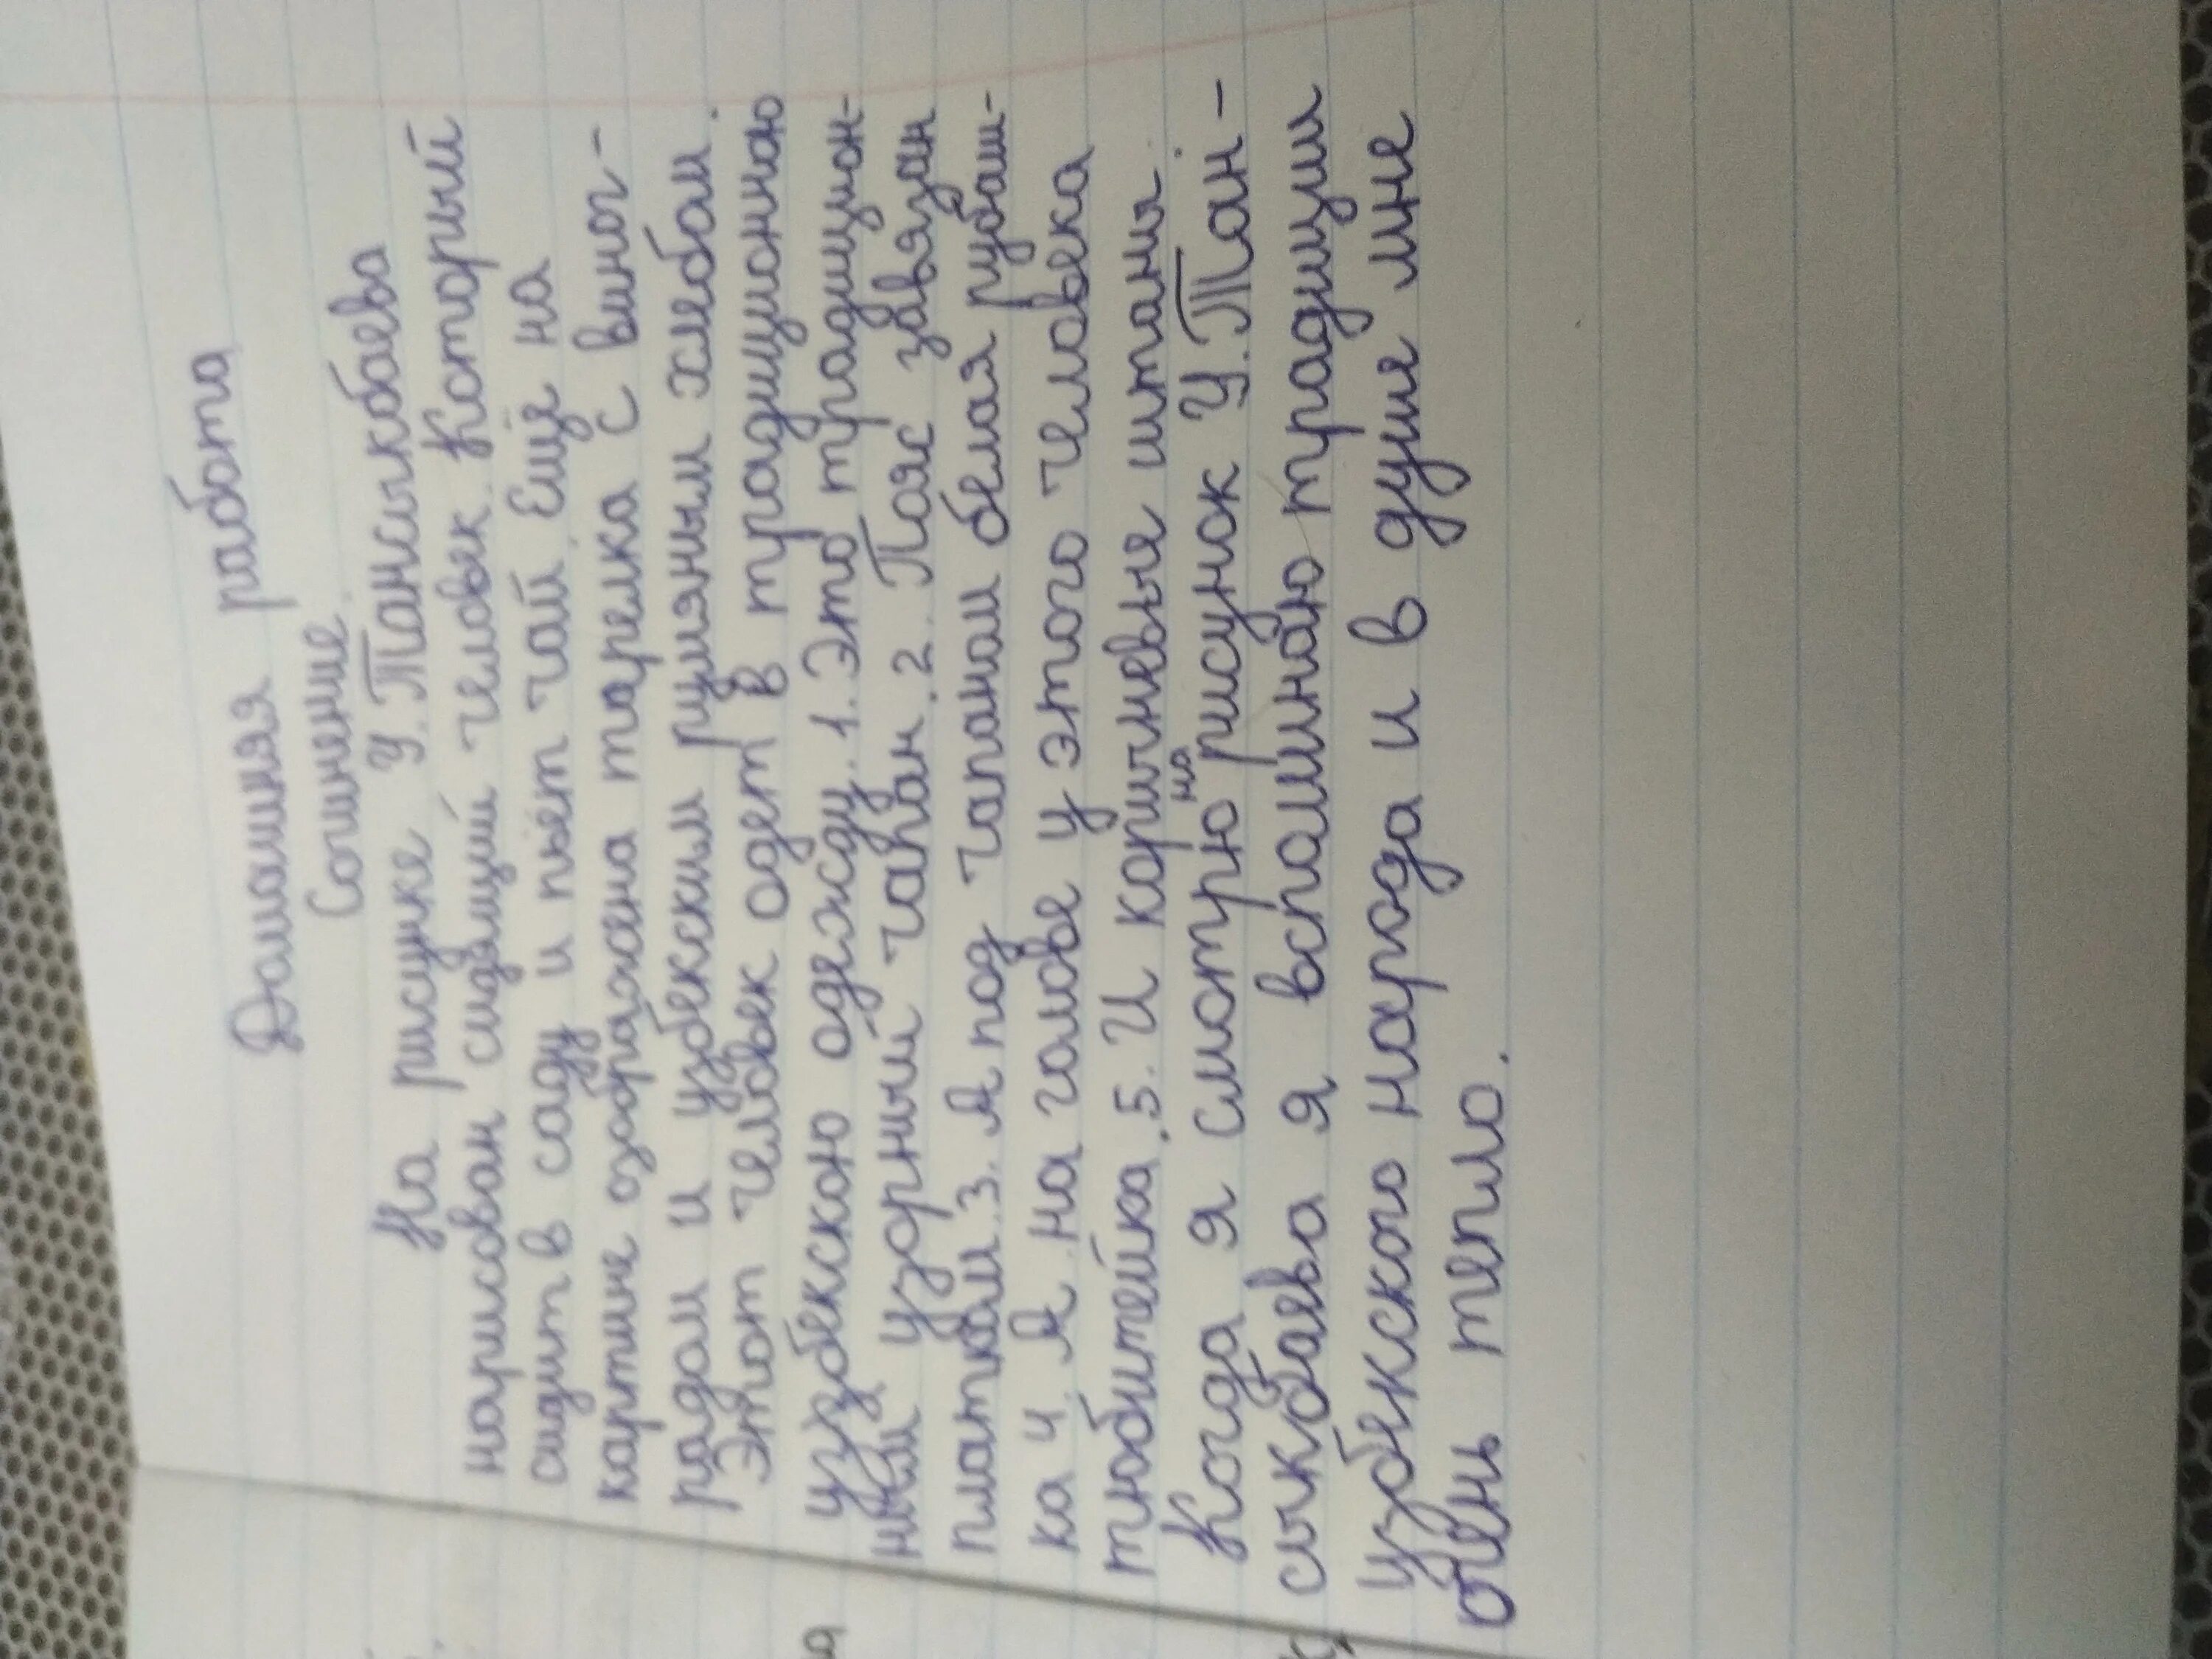 Домашняя работа
Сочинение.
На рисунке У. Тансыкбаева
нарисован сидящий человек. Который
сидит в саду и пьёт чай. Ещё на
картине озображена тарелка с виног-
радом и узбекским румяным хлебом.
Этот человек одет в традиционную
узбекскую одежду. 1. Это традицион-
ный узорный чапан. 2. Пояс завязан
платком. 3. А под чапаном белая рубаш-
ка 4. А на голове у этого человека
тюбитейка. 5. И коричневые штаны.
Когда я смотрю на рисунок У. Тан-
сыкбаева я вспоминаю традиции
узбекского народа и в душе мне
очень тепло.